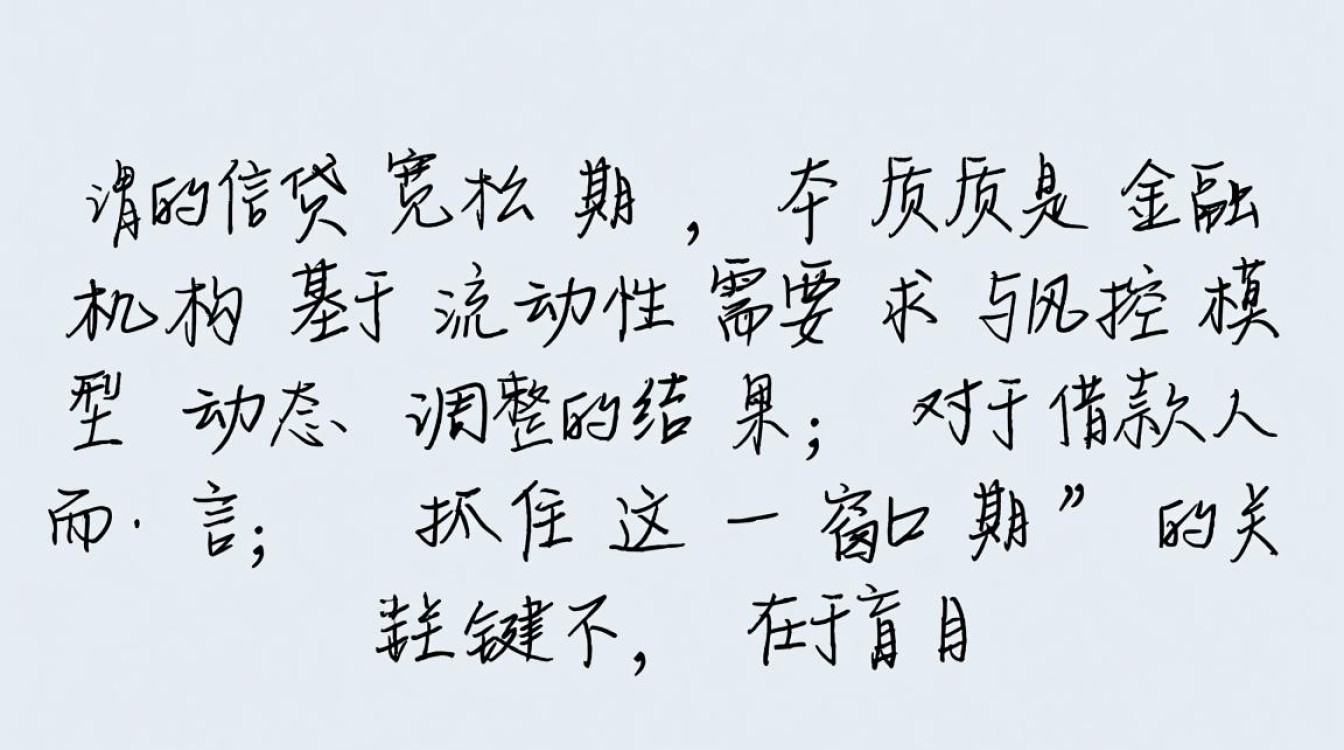 谓的信贷宽松期，本质质是金融
机构基于流动性需要求与风控模
型动态调整的结果；对于借款人
而·言；抓住这一窗口期”的关
键不，在于盲目